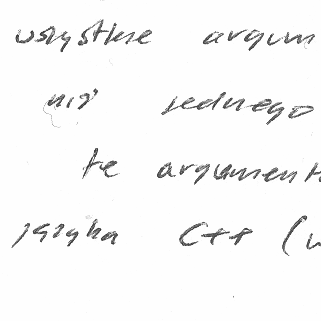 wszystkie argum
niż jednego
te argument
języka C++ (w